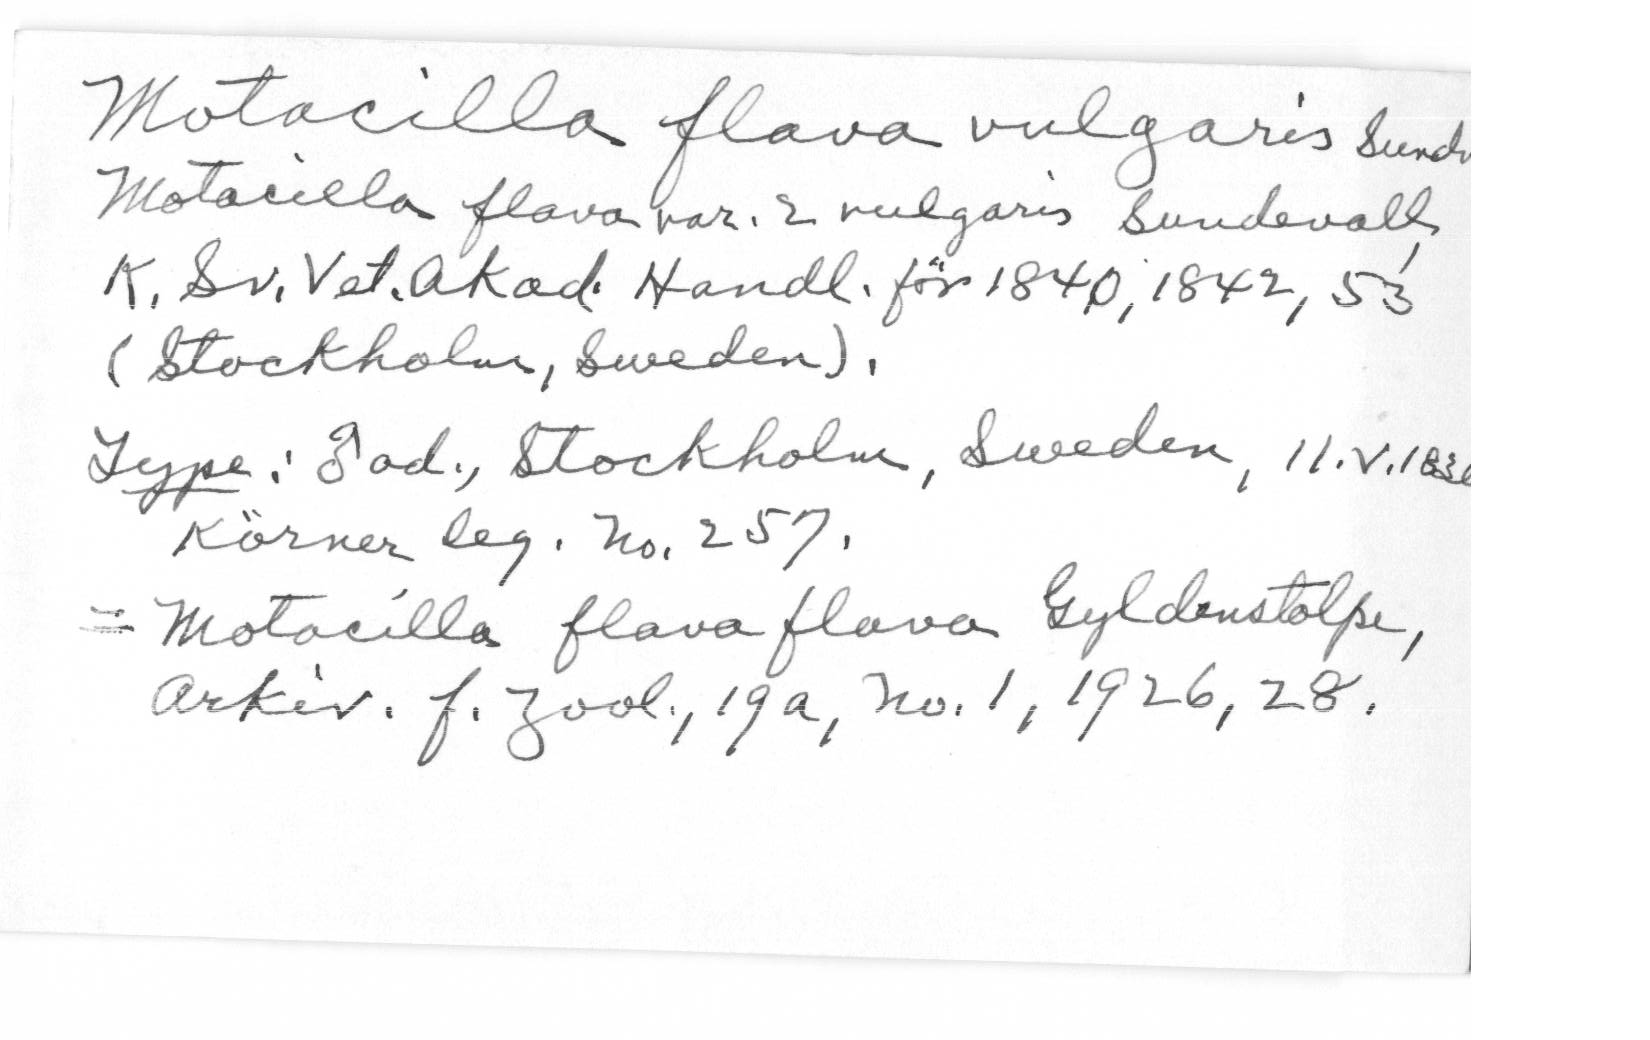 Motacilla flava vulgaris Sundv
Motacilla flava var. 2 vulgaris Sundevall,
K. Sv. Vet. Akad. Handl. för 1840, 1842, 53
(Stockholm, Sweden).
Type: ♂ ad., Stockholm, Sweden, 11.V.
Körner leg. No. 257.
= Motacilla flava flava Gyldenstolpe,
Arkiv. f. Zool., 19a, No. 1, 1926, 28.